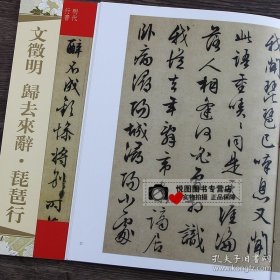 明代
行書
文徵明 歸去來辭·琵琶行
醉不成歡慘將別
我聞琵琶已嘆息又聞
此語重唧唧同是天涯淪
落人相逢何必曾相識
我從去年辭帝京謫居
卧病潯陽城潯陽小處
悦图图书专营店